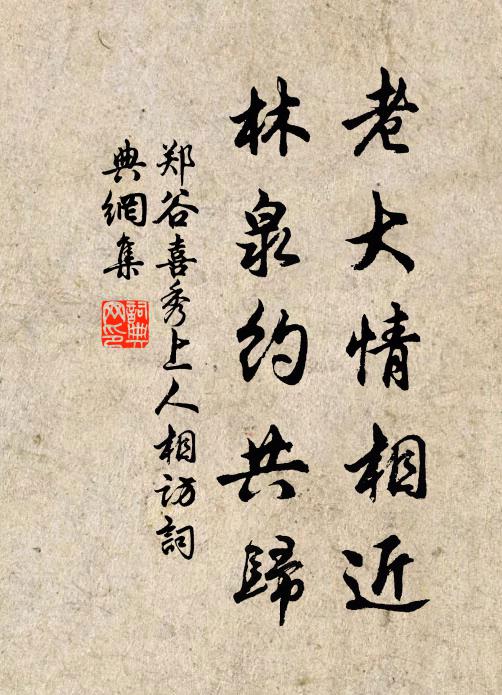 老大情相近
林泉約共歸
郑谷喜秀上人相訪詞
典網集
詞典
网印